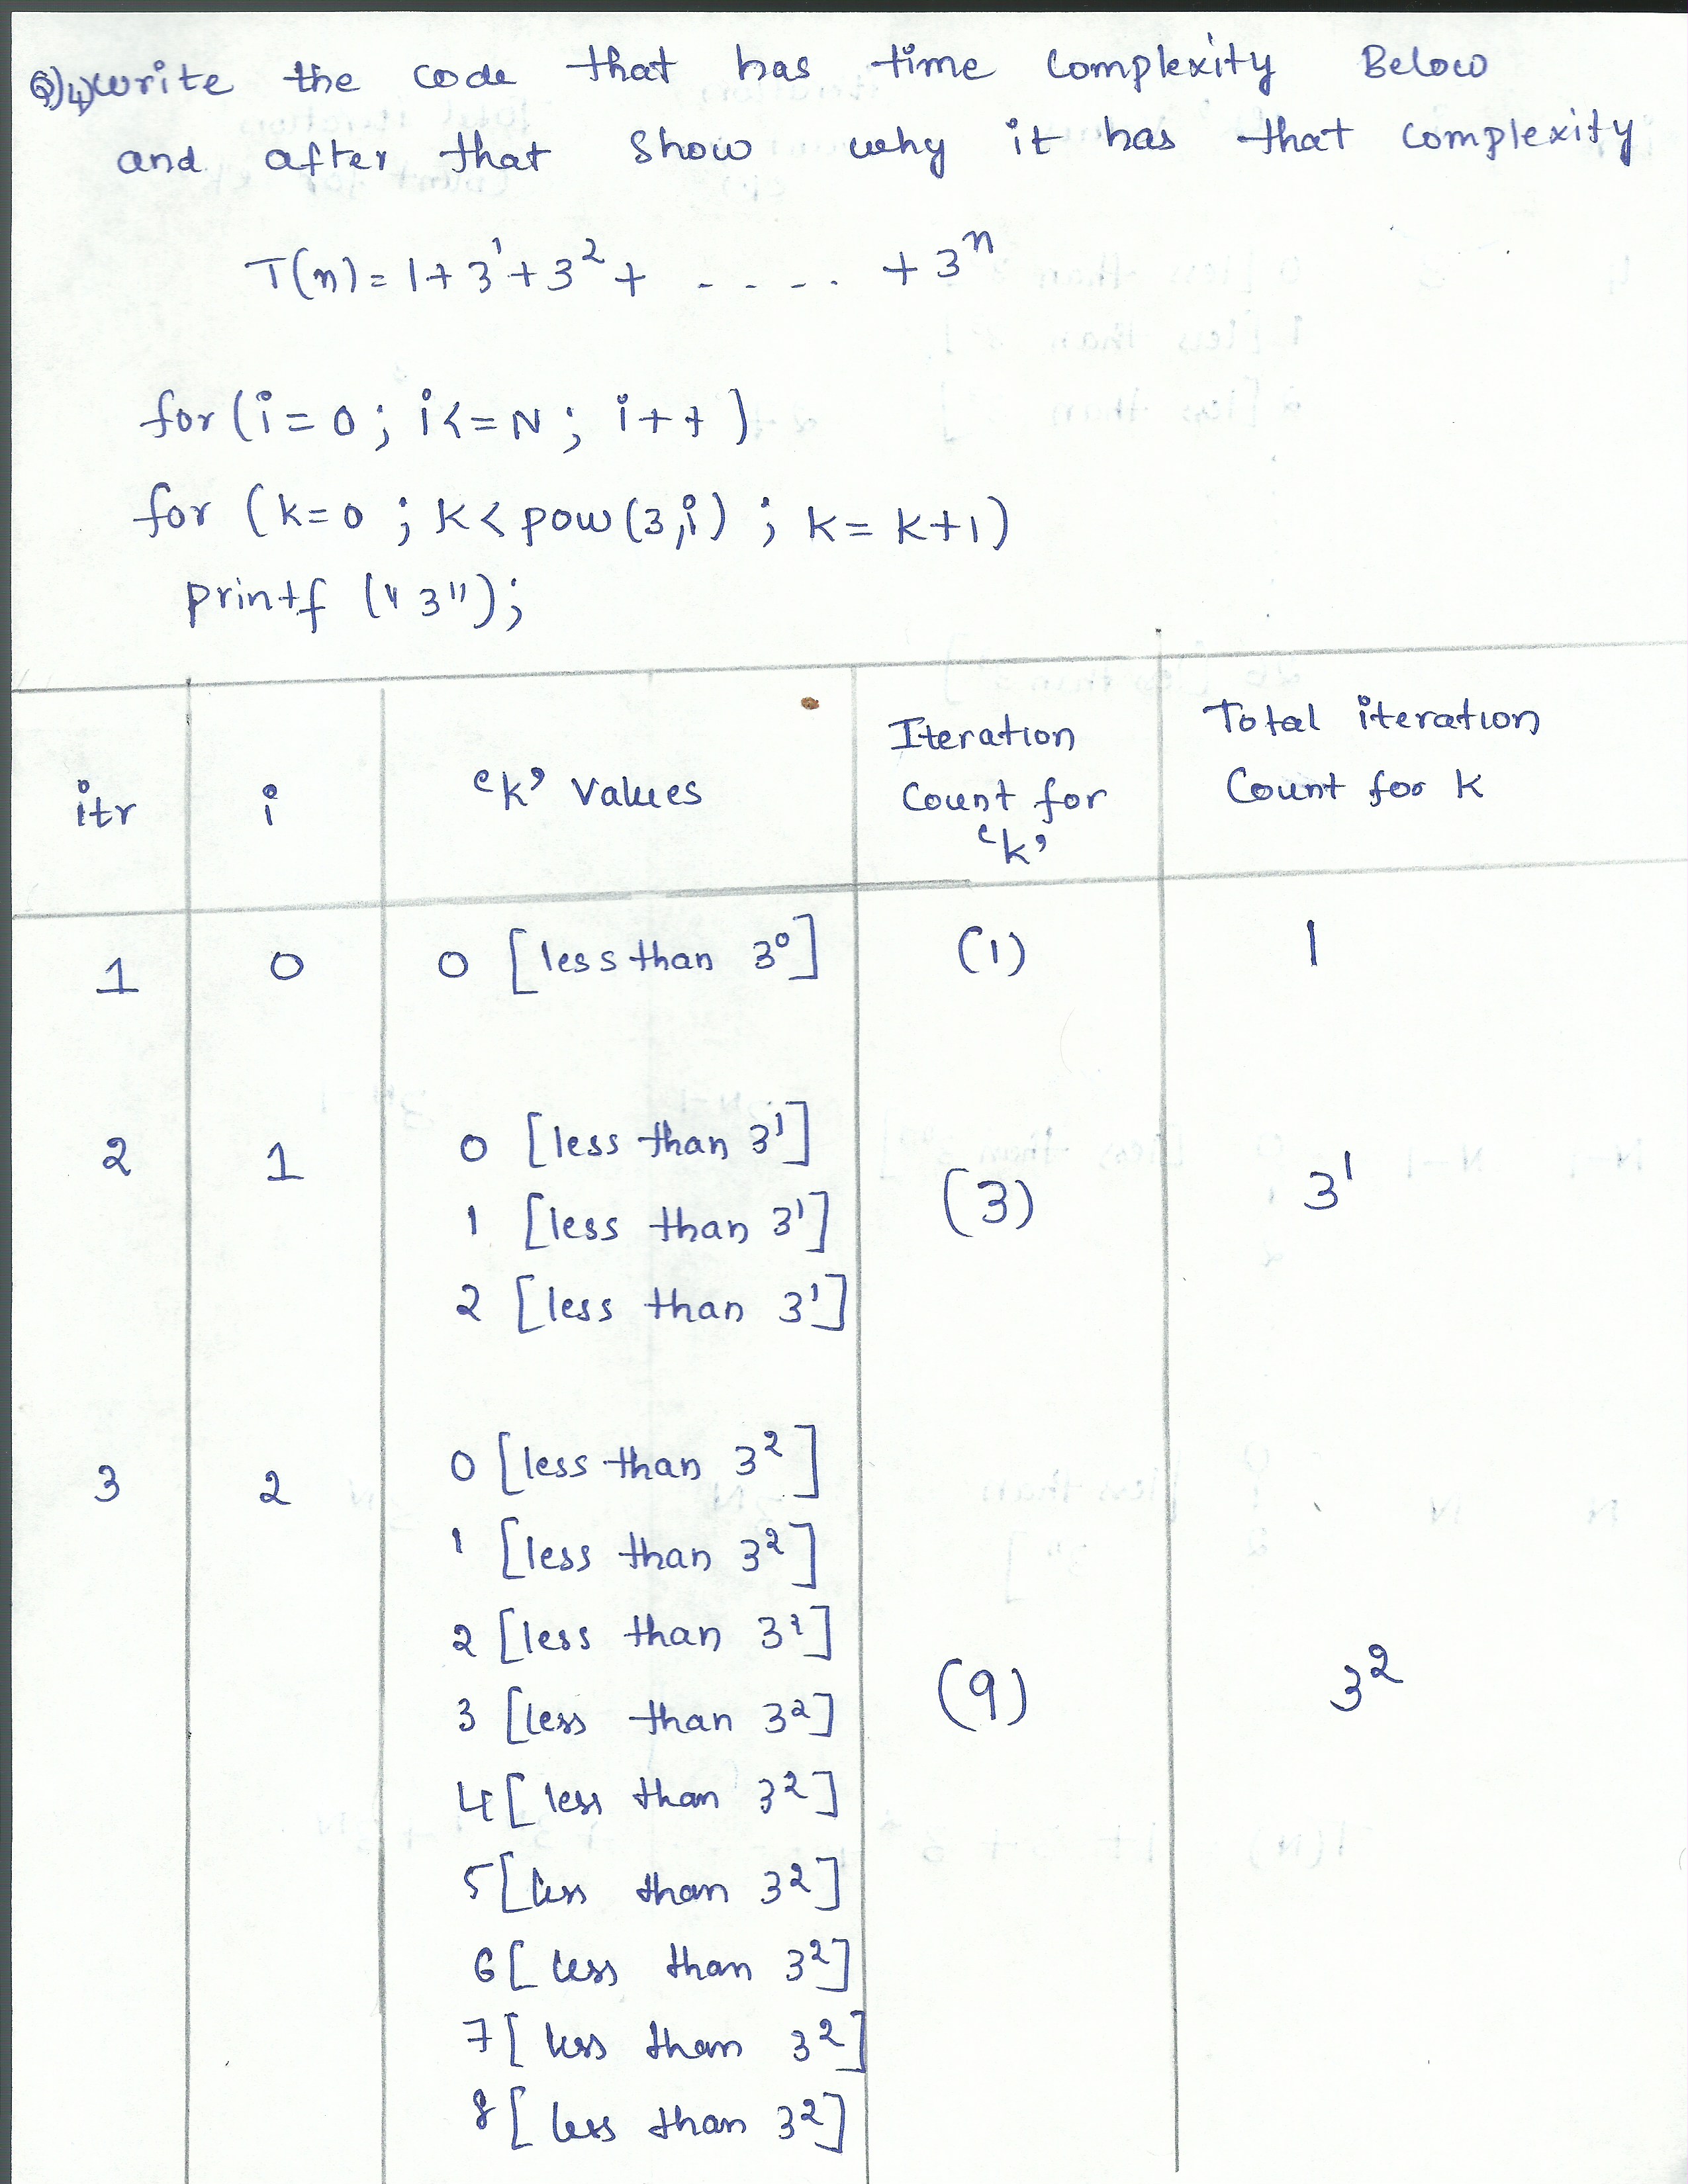 Q)4) write the code that has time complexity Below
and after that show why it has that complexity
T(n) = 1 + 3¹ + 3² + - - - - . + 3ⁿ
for (i = 0 ; i <= N ; i + + )
for (k=0 ; k < pow (3,i) ; k = k+1)
printf ("3");
itr i 'k' Values Iteration Count for 'k' Total iteration Count for k
1 0 0 [less than 3⁰] (1) 1
2 1 0 [less than 3¹] (3) 3¹
1 [less than 3¹]
2 [less than 3¹]
3 2 0 [less than 3²] (9) 3²
1 [less than 3²]
2 [less than 3²]
3 [less than 3²]
4 [less than 3²]
5 [less than 3²]
6 [less than 3²]
7 [less than 3²]
8 [less than 3²]